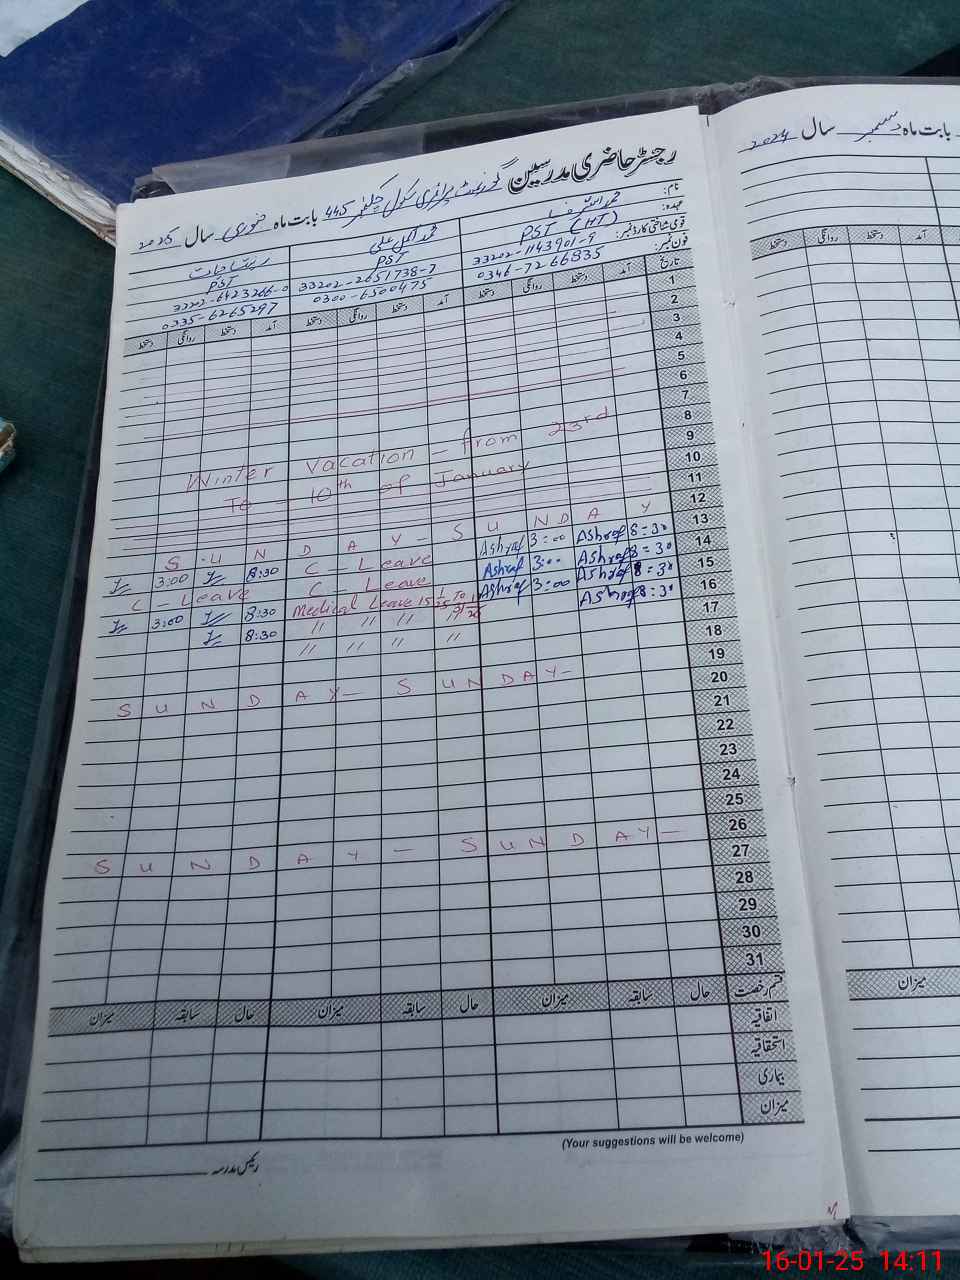 رجسٹر حاضری مدرسین گورنمنٹ پرائمری سکول 445 بابت ماہ جنوری سال 2025
نام:
عہدہ: PST (HT) PST PST
قومی شناختی کارڈ نمبر: 33202-1143901-9 33202-2651738-7 33202-6423266-0
فون نمبر: 0346-7266835 0300-6500475 0335-6265297
تاریخ آمد دستخط روانگی دستخط آمد دستخط روانگی دستخط آمد دستخط روانگی دستخط
1
2
3
4
5
6
7
8
9
10
11
12
13
14
15
16
17
18
19
20
21
22
23
24
25
26
27
28
29
30
31
Winter vacation - from 23rd
To - 10th of January
S U N D A Y - S U N D A Y
3:00 8:30 C - Leave Ashraf 3:00 Ashraf 8:30
C - Leave C - Leave Ashraf 3:00 Ashraf 8:30
3:00 8:30 Medical Leave 15 Ashraf 3:00 Ashraf 8:30
8:30 " " " " Ashraf 8:30
" " " "
S U N D A Y - S U N D A Y -
S U N D A Y - S U N D A Y -
قسم رخصت حال سابقہ میزان حال سابقہ میزان حال سابقہ میزان
اتفاقیہ
استحقاقیہ
بیماری
میزان
(Your suggestions will be welcome)
رئیس مدرسہ
بابت ماہ دسمبر سال 2024
آمد دستخط روانگی دستخط
میزان
16-01-25 14:11